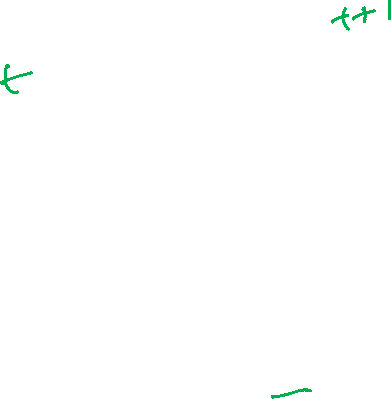 t+1
t